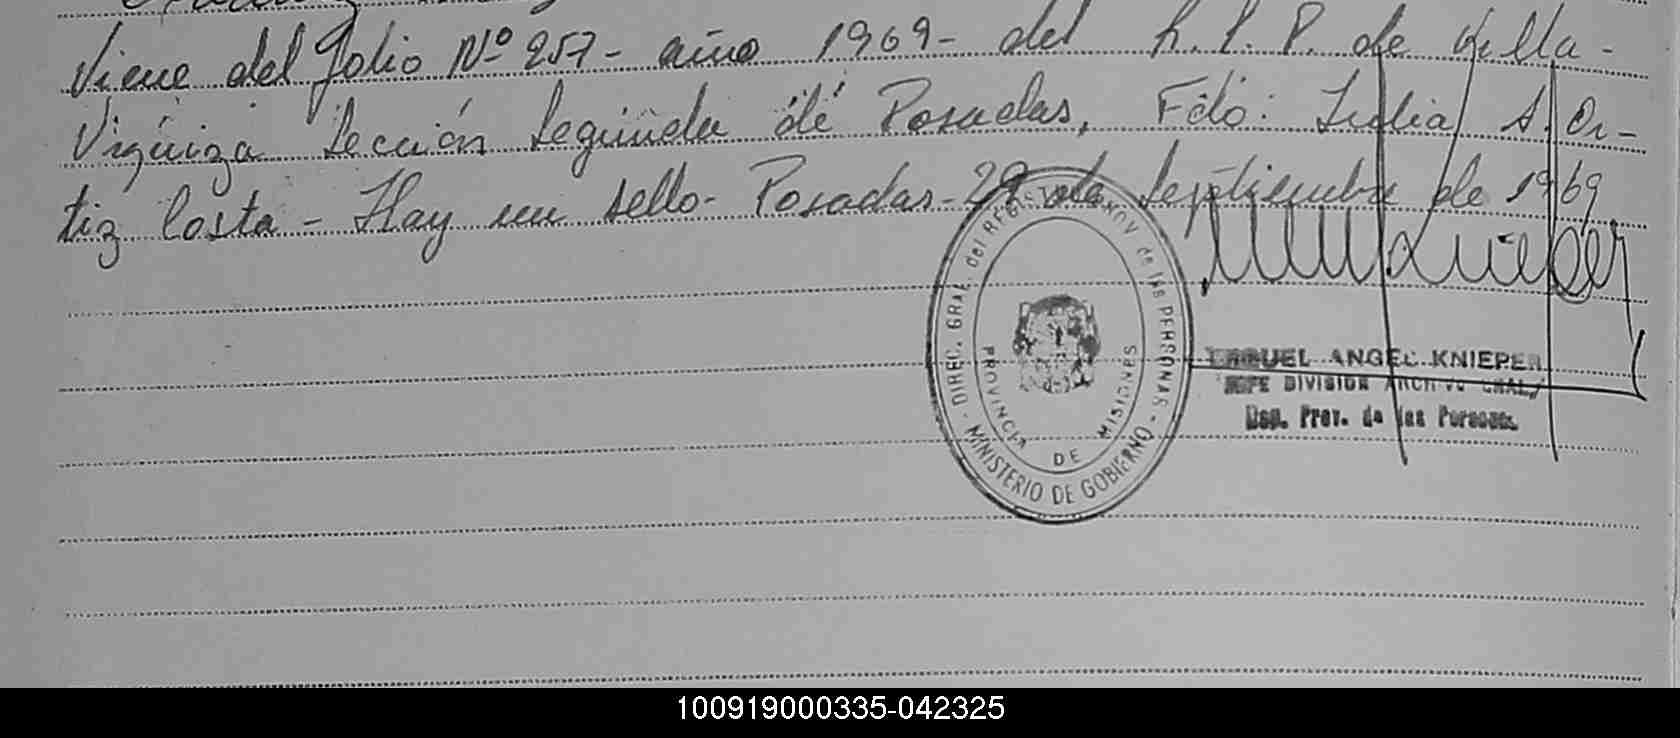 Viene del folio Nº 257- año 1969- del R.P.P. de Villa-
Viguiza Sección Segunda de Posadas, Fdo: Lidia A. Or-
tiz Costa - Hay un sello- Posadas-29 de Septiembre de 1969
DIREC. GRAL. del REGISTRO PROV de las PERSONAS - MINISTERIO DE GOBIERNO -
PROVINCIA DE MISIONES
MIGUEL ANGEL KNIEPER
JEFE DIVISION ARCHIVO GRAL.
Reg. Prov. de las Personas
100919000335-042325